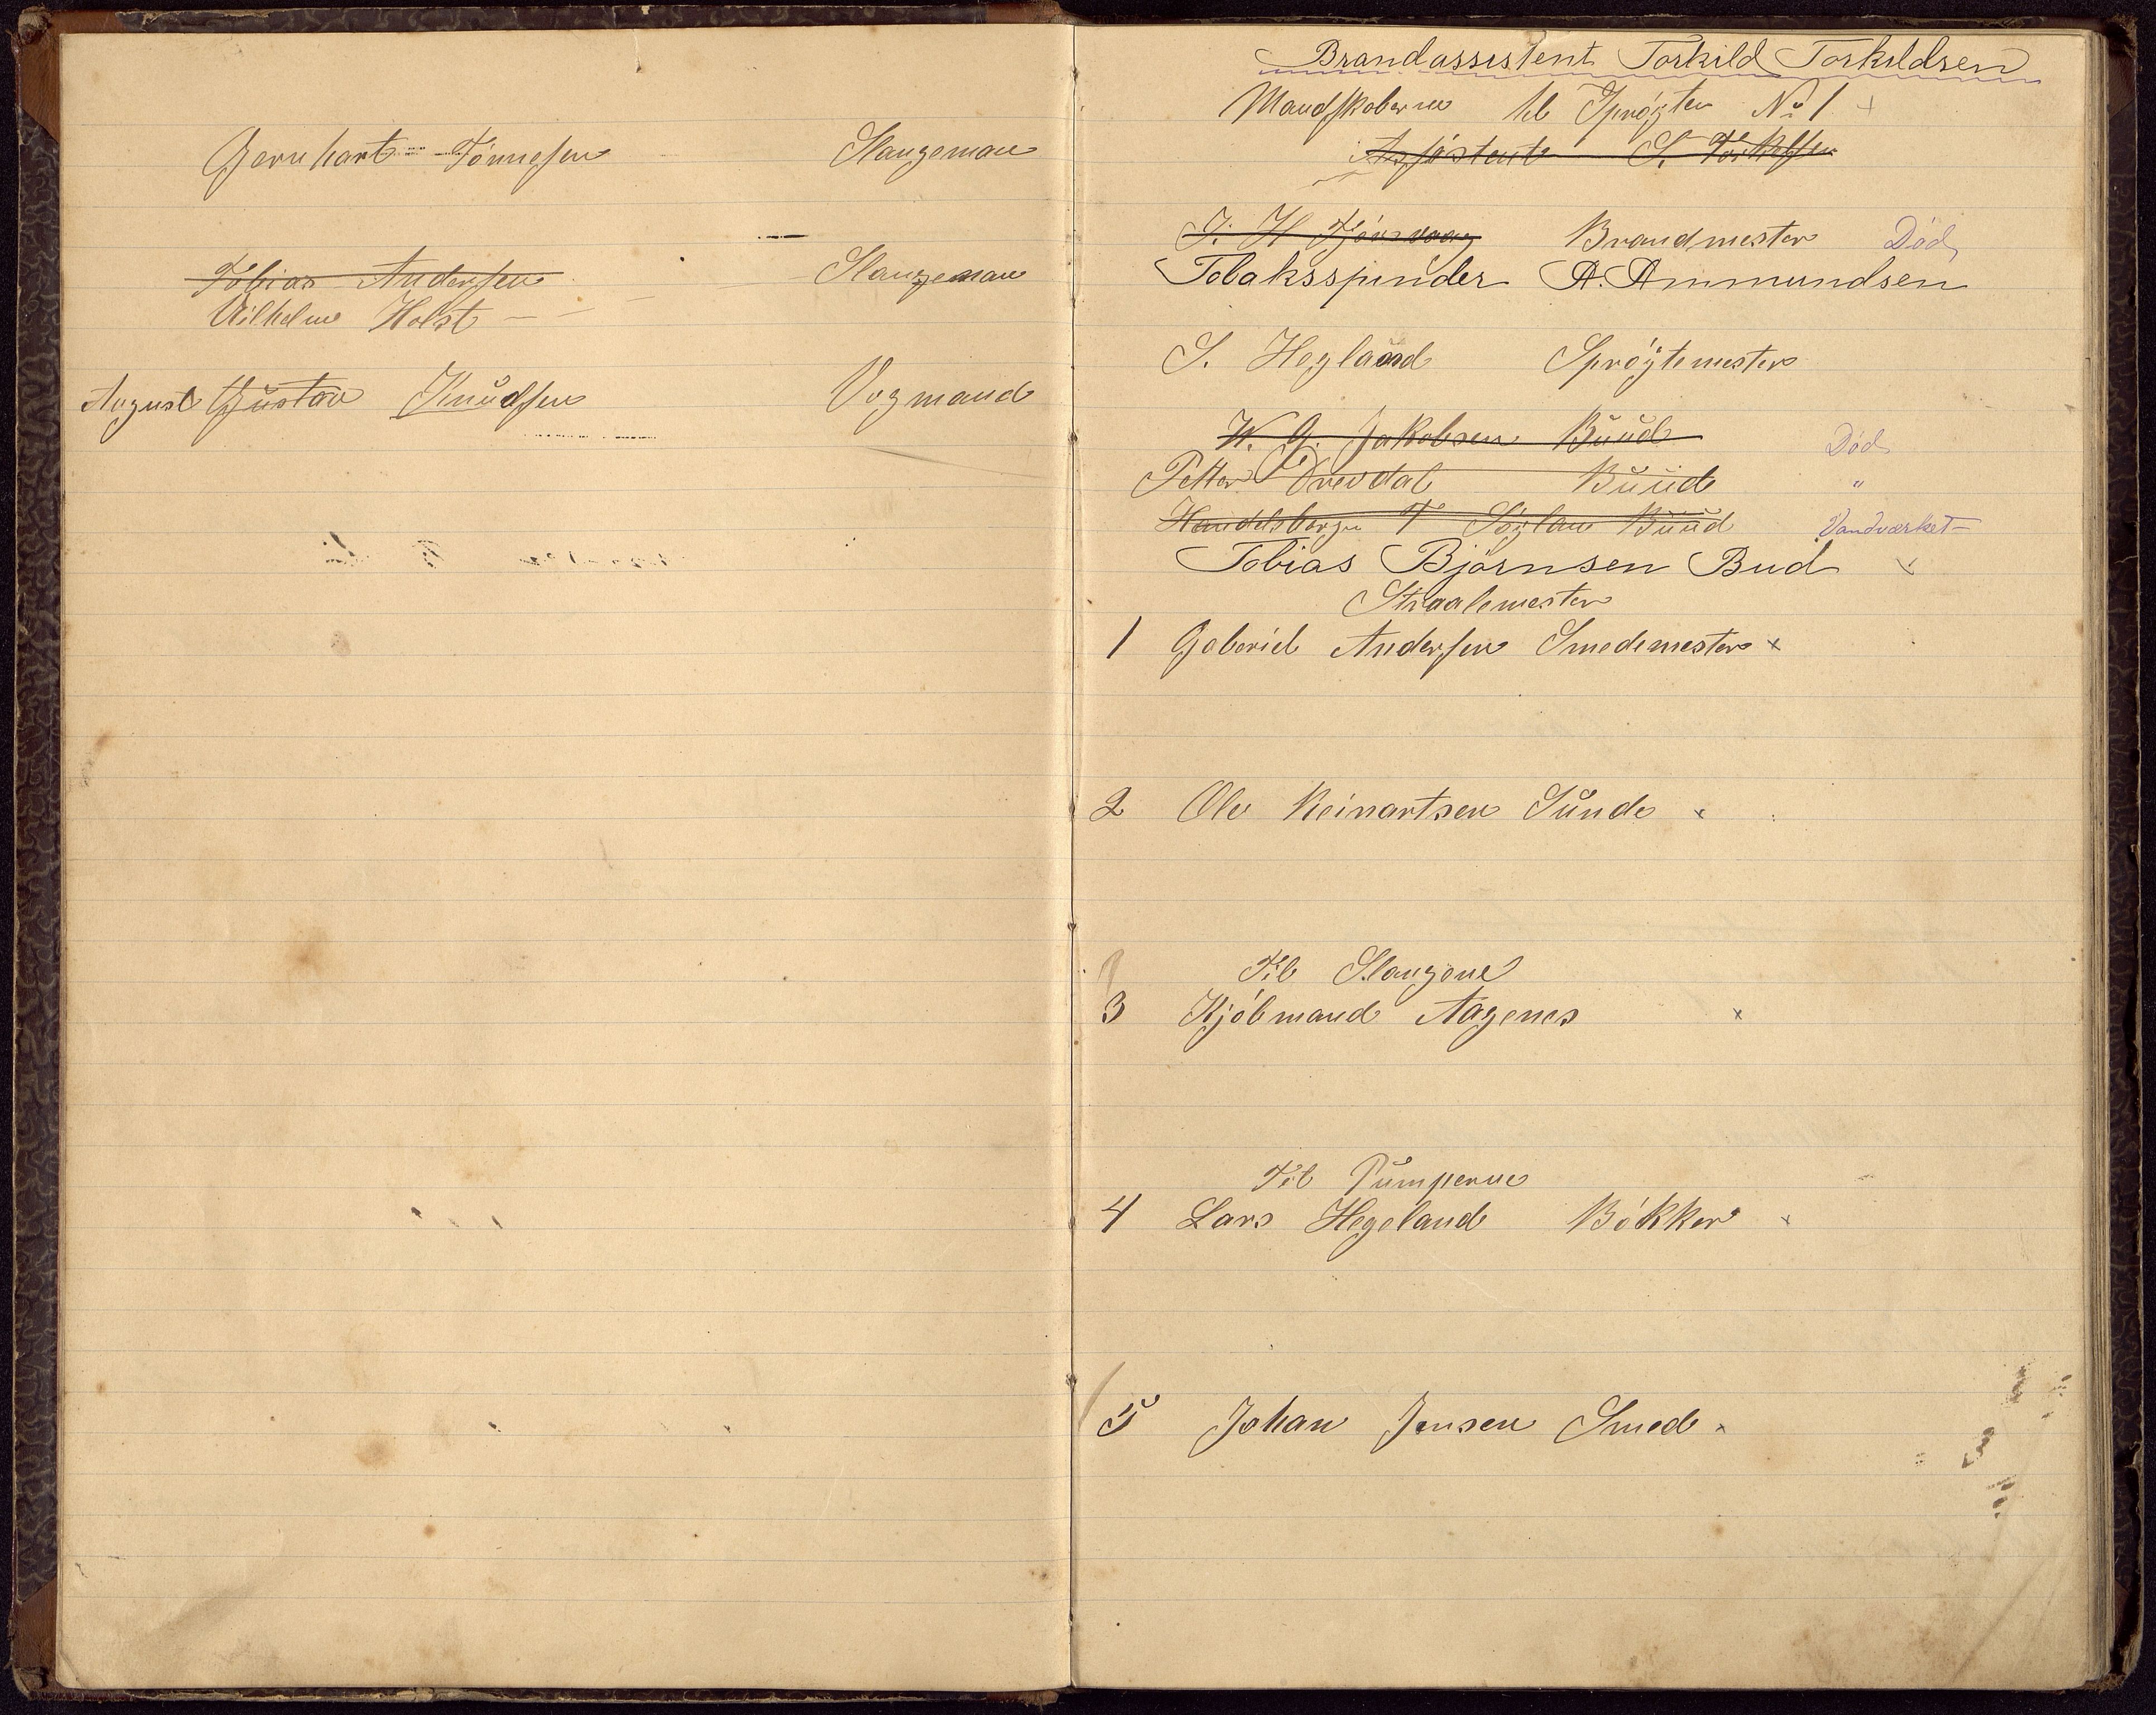 Gernhart Tönnesen Slangeman
Tobias Andersen Slangeman
Vilhelm Holst
August Gustav Knudsen Vogmand
Brandassistent Torkild Torkildsen
Mandskaberne til Spröiten No 1 x
Assistent S. Torkelsen
Brandmester Död
Tobaksspinder A. Ammundsen
S. Hegland Spröitemester
W. G. Jakobsen Buud Död
Petter Drevdal Buud "
T Buud Vandværket
Tobias Björnsen Bud x
Straalemester
1 Gabriel Andersen Smedemester x
2 Ole Reinartsen Sunde x
Til Slangene
3 Kjöbmand Aagenes x
Til Pumperne
4 Lars Hegeland Bökker x
5 Johan Jensen Smed x